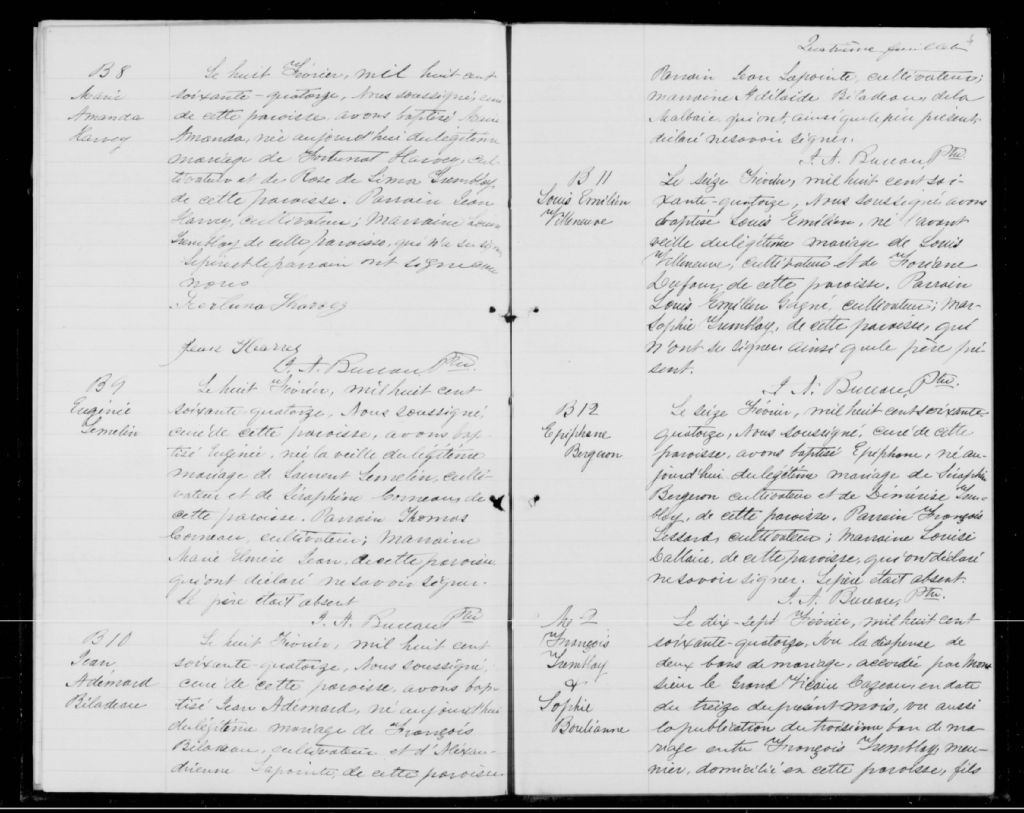 B 8
Marie
Amanda
Harvey
Le huit Février, mil huit cent
soixante-quatorze, Nous soussigné, curé
de cette paroisse, avons baptisé Marie
Amanda, née aujourd'hui du légitime
mariage de Fortunat Harvey, cul-
tivateur et de Rose de Lima Tremblay,
de cette paroisse. Parrain Jean
Harvey, cultivateur; Marraine
Tremblay de cette paroisse, qui n'a su signer
Le père et le parrain ont signé avec
nous
Harvey
Jean Harvey
J. A. Bureau Ptre.
B 9
Eugénie
Gemelin
Le huit Février, mil huit cent
soixante-quatorze, Nous soussigné,
curé de cette paroisse, avons bap-
tisé Eugénie, née la veille du légitime
mariage de Laurent Gemelin, culti-
vateur et de Séraphine Comeau, de
cette paroisse. Parrain Thomas
Comeau, cultivateur; Marraine
Marie Elmire Jean, de cette paroisse
qui ont déclaré ne savoir signer.
Le père était absent
J. A. Bureau Ptre
B 10
Jean
Ademard
Biladeau
Le huit Février, mil huit cent
soixante-quatorze, Nous soussigné,
curé de cette paroisse, avons bap-
tisé Jean Ademard, né aujourd'hui
du légitime mariage de François
Biladeau, cultivateur et d'Alexan-
drienne Lapointe, de cette paroisse
Quatrième feuillet
4
Parrain Jean Lapointe, cultivateur;
marraine Adélaide Biladeau, de la
Malbaie, qui ont, ainsi que le père présent
déclaré ne savoir signer.
J. A. Bureau Ptre
B 11
Louis Emélien
Villeneuve
Le seize Février, mil huit cent soi-
xante-quatorze, Nous soussigné avons
baptisé Louis Emélien, né l'avant
veille du légitime mariage de Louis
Villeneuve, cultivateur et de
Dufour, de cette paroisse. Parrain
Louis Emélien Gagné, cultivateur; Mar-
Sophie Tremblay, de cette paroisse, qui
n'ont su signer ainsi que le père pré-
sent.
J. A. Bureau, Ptre.
B 12
Epiphane
Bergeron
Le seize Février, mil huit cent soixante-
quatorze, Nous soussigné, curé de cette
paroisse, avons baptisé Epiphane, né au-
jourd'hui du légitime mariage de Séraphin
Bergeron cultivateur et de Démérise Trem-
blay, de cette paroisse. Parrain François
Lessard, cultivateur; Marraine Louise
Dallaire, de cette paroisse, qui ont déclaré
ne savoir signer. Le père était absent.
J. A. Bureau, Ptre.
M 2
François
Tremblay
&
Sophie
Boulianne
Le dix-sept Février, mil huit cent
soixante-quatorze, Vu la dispense de
deux bans de mariage, accordée par Mon-
sieur le Grand Vicaire Cazeau, en date
du treize du présent mois, vu aussi
la publication du troisième ban de ma-
riage entre François Tremblay, meu-
nier, domicilié en cette paroisse, fils